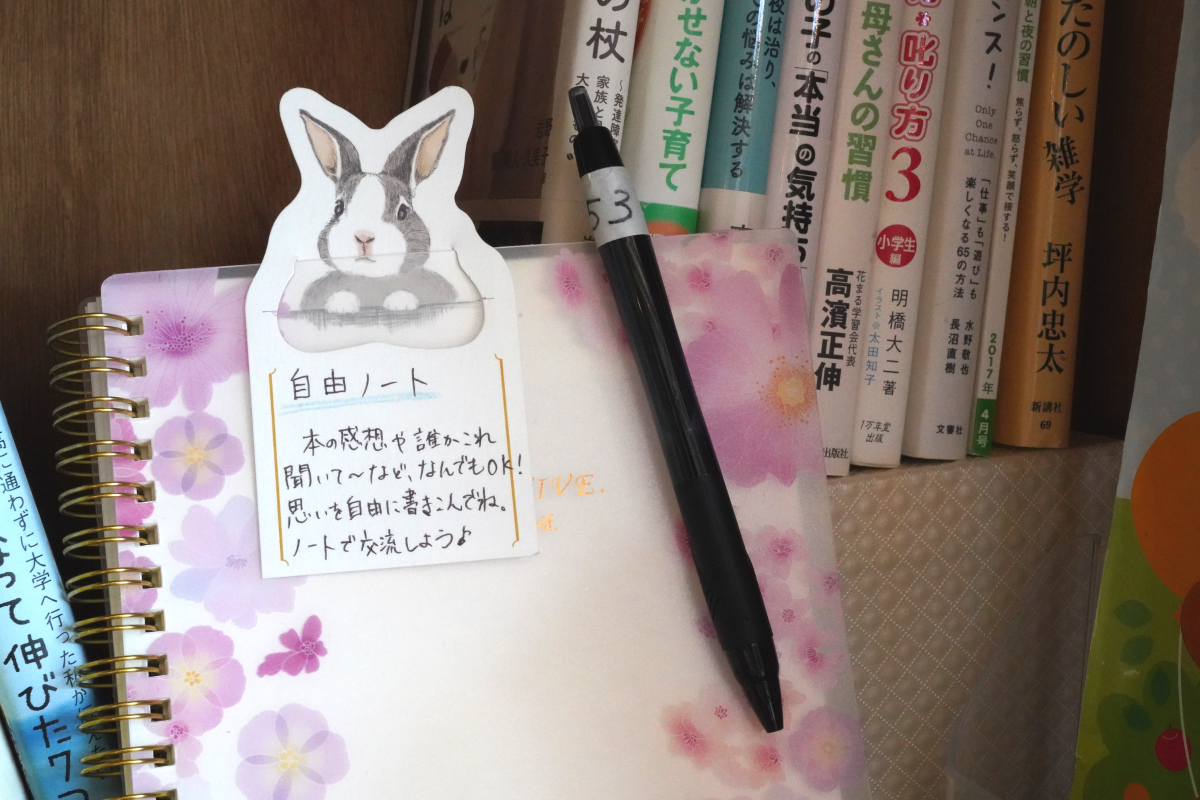 自由ノート
本の感想や誰かこれ
聞いて~など、なんでもOK!
思いを自由に書きこんでね。
ノートで交流しよう♪
53
IVE.
の杖
~発達障
家族と
大
せない子育て
夜は治り、
の悩みは解決する
の子の「本当」の気持ち
母さんの習慣
花まる学習会代表
高濱正伸
叱り方3
小学生編
明橋大二 著
イラスト* 太田知子
1万年堂出版
ンス!
Only
One
Chance
at Life.
「仕事」も「遊び」も
楽しくなる65の方法
水野敬也
長沼直樹
文響社
朝と夜の習慣
焦らず、怒らず、笑顔で接する!
2017年
4月号
たのしい雑学
坪内忠太
新講社
69
に通わずに大学へ行った私が
って伸びた7つ